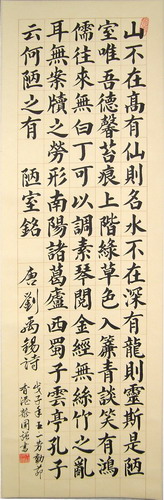 山不在高有仙則名水不在深有龍則靈斯是陋
室唯吾德馨苔痕上階綠草色入簾青談笑有鴻
儒往來無白丁可以調素琴閱金經無絲竹之亂
耳無案牘之勞形南陽諸葛廬西蜀子雲亭孔子
云何陋之有 陋室銘 唐劉禹錫詩
戊子年五一勞動節
香港